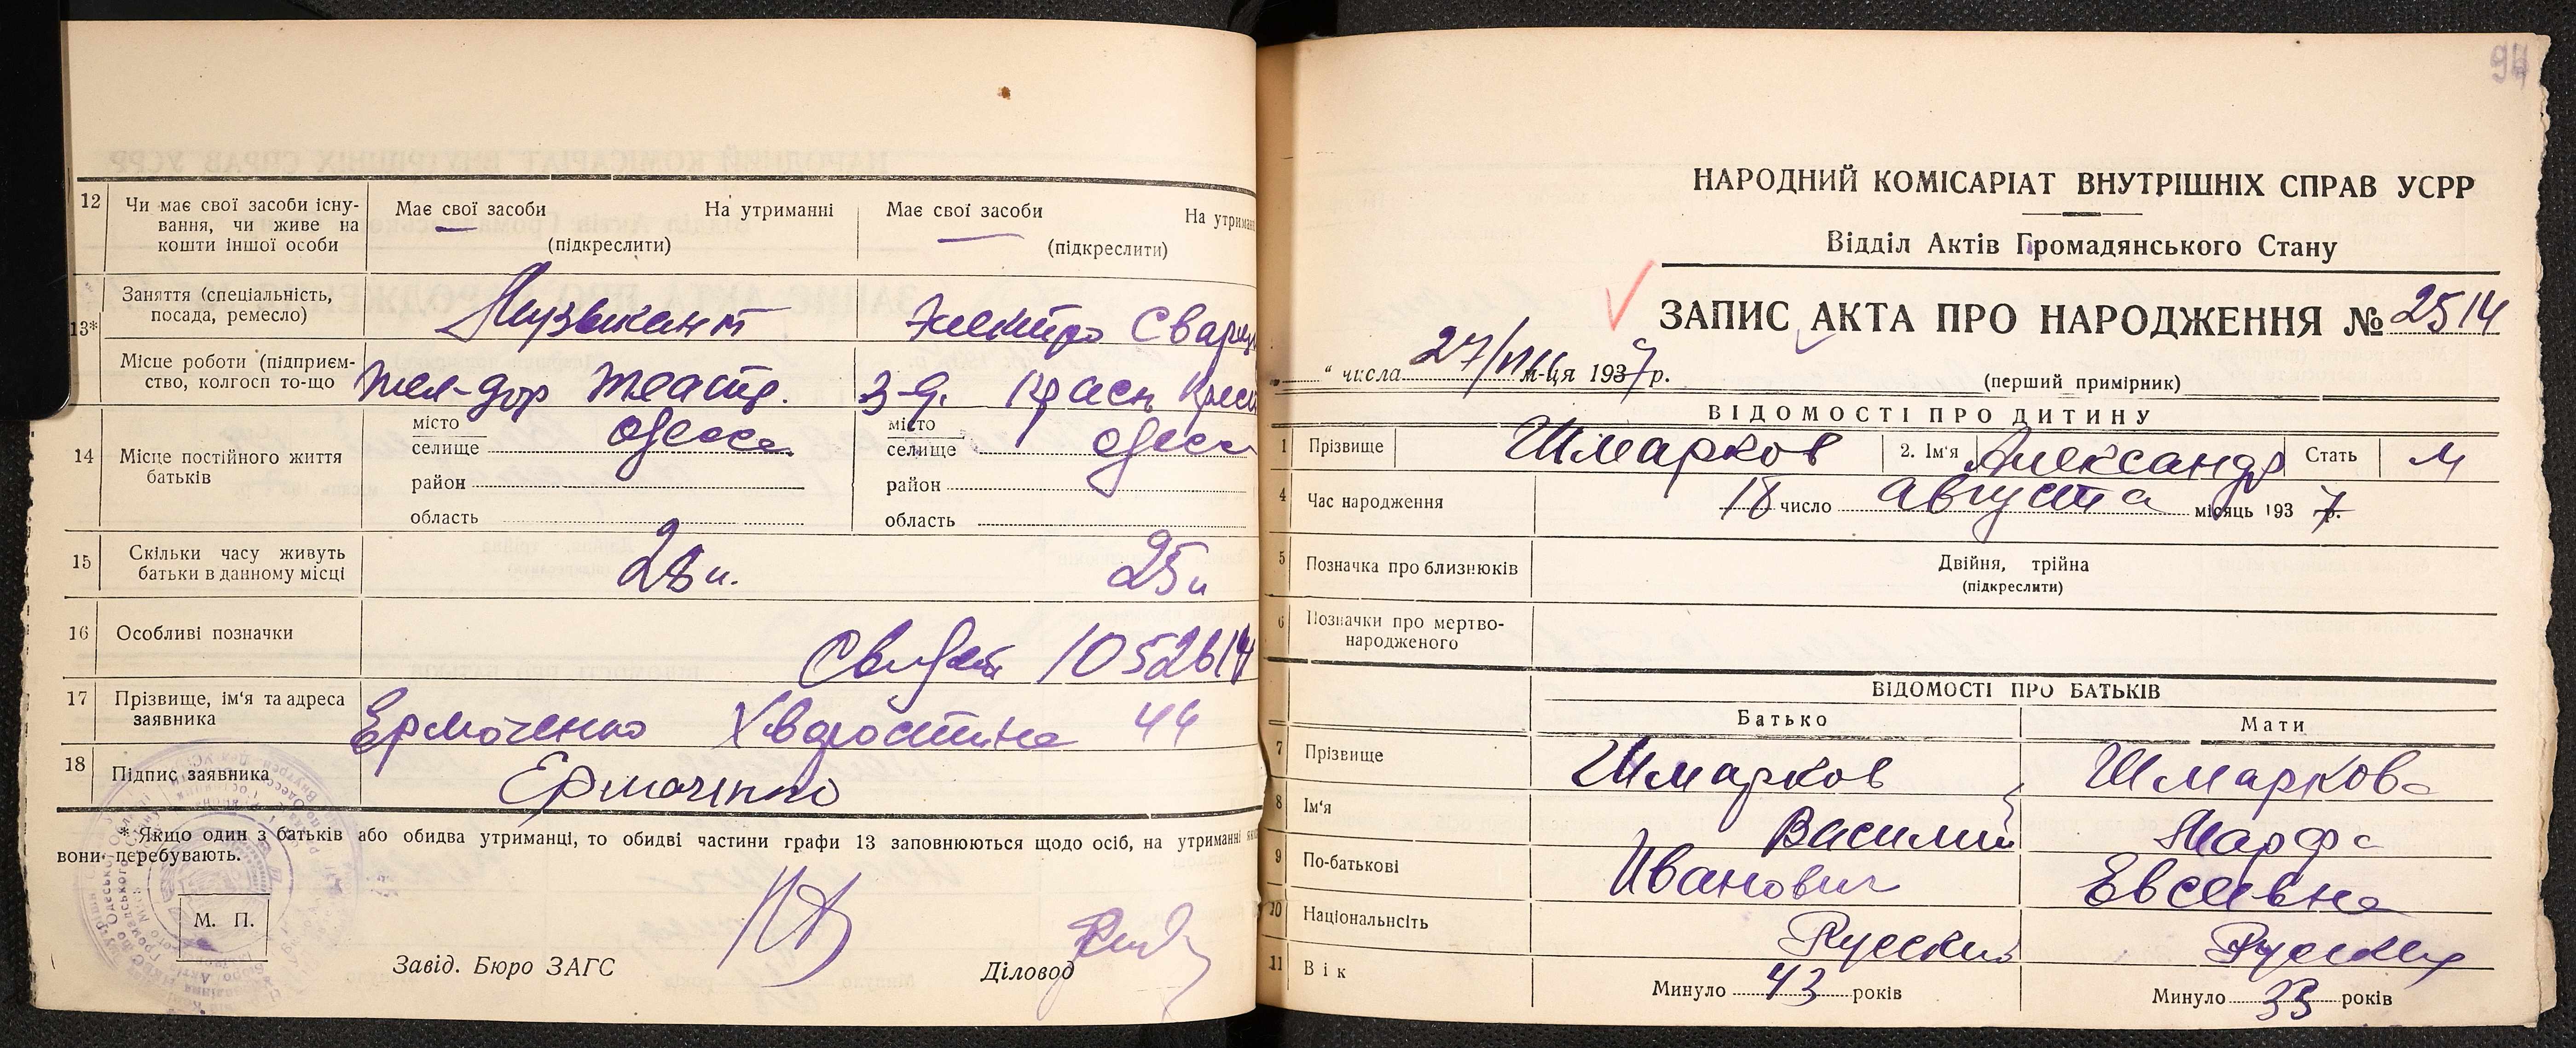 12 Чи має свої засоби існу-
вання, чи живе на
кошти іншої особи
Має свої засоби На утриманні
(підкреслити)
Має свої засоби
(підкреслити)
13*
Заняття (спеціальність,
посада, ремесло)
Музыкант
Электро
Місце роботи (підприєм-
ство, колгосп то-що
Жел-дор театр.
З-д. Красн
14 Місце постійного життя
батьків
місто
селище Одесса
район
область
місто
селище
район
область
15 Скільки часу живуть
батьки в данному місці
28 л.
25 л
16 Особливі позначки
17 Прізвище, ім'я та адреса
заявника
Ермоченко Хворостина 44
18 Підпис заявника
* Якщо один з батьків або обидва утриманці, то обидві частини графи 13 заповнюються щодо осіб, на утриманні
вони перебувають.
М. П.
Завід. Бюро ЗАГС
Діловод
НАРОДНИЙ КОМІСАРІАТ ВНУТРІШНІХ СПРАВ УСРР
Відділ Актів Громадянського Стану
ЗАПИС АКТА ПРО НАРОДЖЕННЯ № 2514
" числа 27/VIII м-ця 1937 р.
(перший примірник)
ВІДОМОСТІ ПРО ДИТИНУ
1 Прізвище Шмарков 2. Ім'я Александр Стать М
4 Час народження 18 число Августа місяць 1937 р.
5 Позначка про близнюків
Двійня, трійна
(підкреслити)
6 Позначки про мертво-
народженого
ВІДОМОСТІ ПРО БАТЬКІВ
Батько Мати
7 Прізвище Шмарков Шмаркова
8 Ім'я Василий Марфа
9 По-батькові Иванович Евсеевна
10 Національність Русский
11 Вік
Минуло 43 років
Минуло 33 років